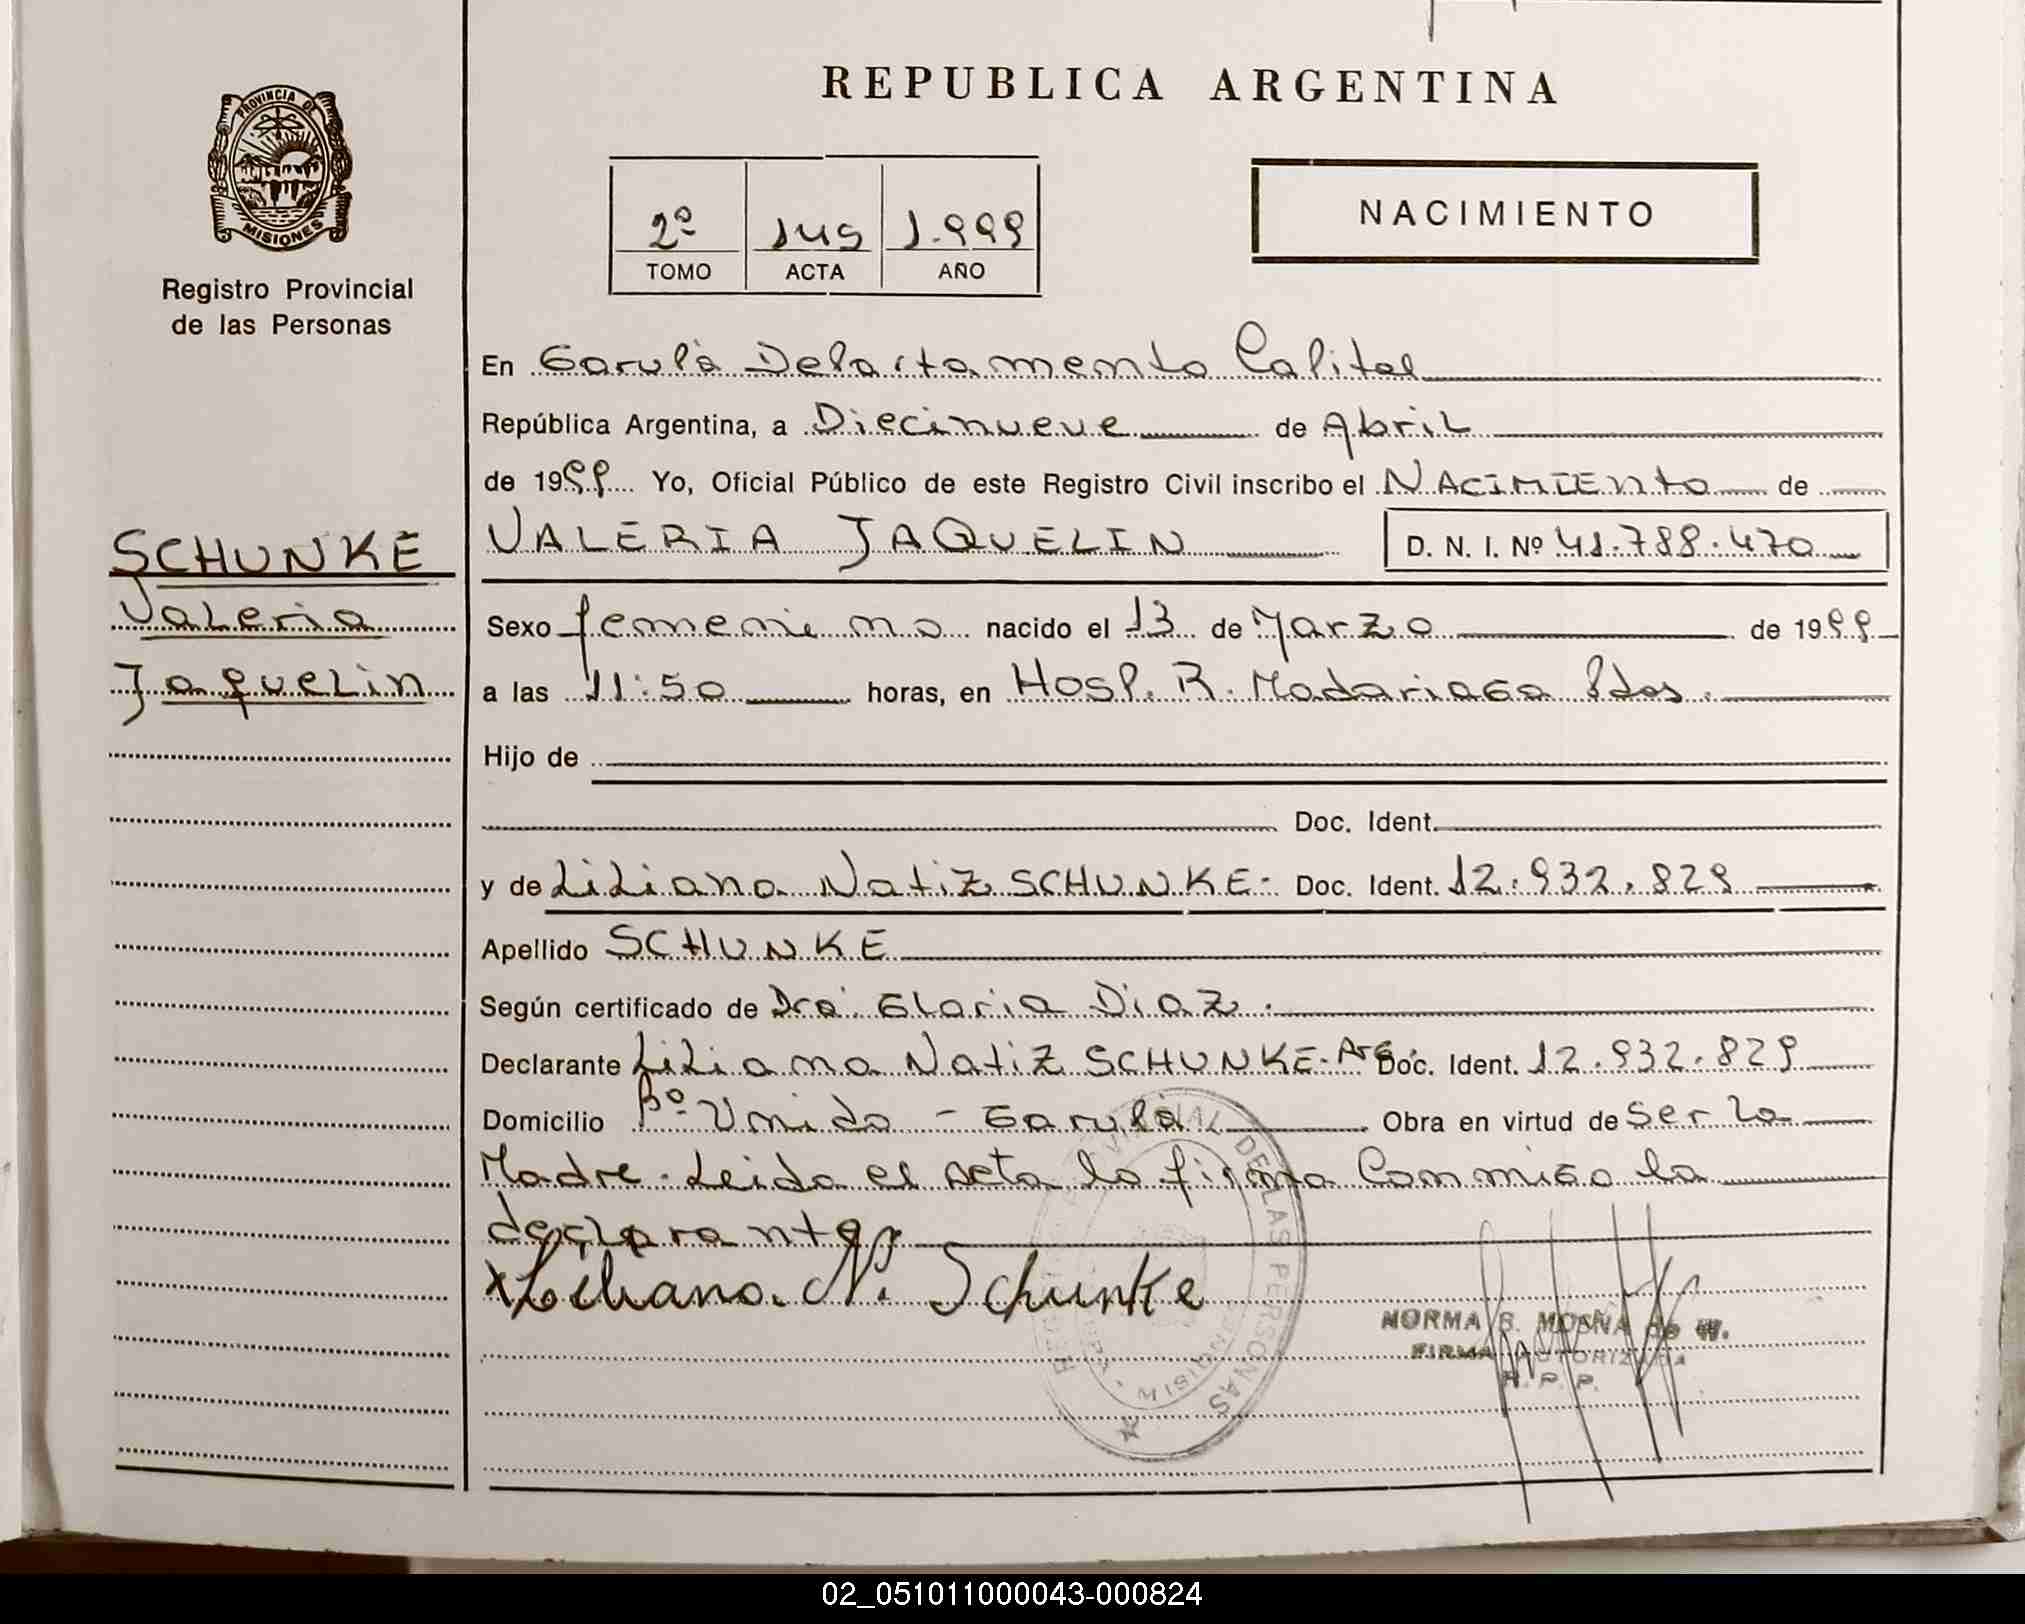 REPUBLICA ARGENTINA
PROVINCIA DE
MISIONES
Registro Provincial
de las Personas
2º 149 1.999
TOMO ACTA AÑO
NACIMIENTO
En Garupá Departamento Capital
República Argentina, a Diecinueve de Abril
de 1999 Yo, Oficial Público de este Registro Civil inscribo el NACIMIENTO de
SCHUNKE
Valeria
Jaquelin
VALERIA JAQUELIN D. N. I. Nº 41.788.470
Sexo femenino nacido el 13 de Marzo de 1999
a las 11:50 horas, en Hosp. R. Madariaga Pdas.
Hijo de
Doc. Ident.
y de Liliana Natiz SCHUNKE- Doc. Ident. 12.932.829
Apellido SCHUNKE
Según certificado de Dra. Gloria Diaz.
Declarante Liliana Natiz SCHUNKE- Arg. Doc. Ident. 12.932.829
Domicilio Bº Unido - Garupá Obra en virtud de Ser la
Madre. Leida el acta la firma Conmigo la
declarante
x Liliana. N. Schunke
DE LAS PERSONAS
MISIONES
NORMA B. MOSNA de W.
FIRMA AUTORIZADA
R. P. P.
02_051011000043-000824